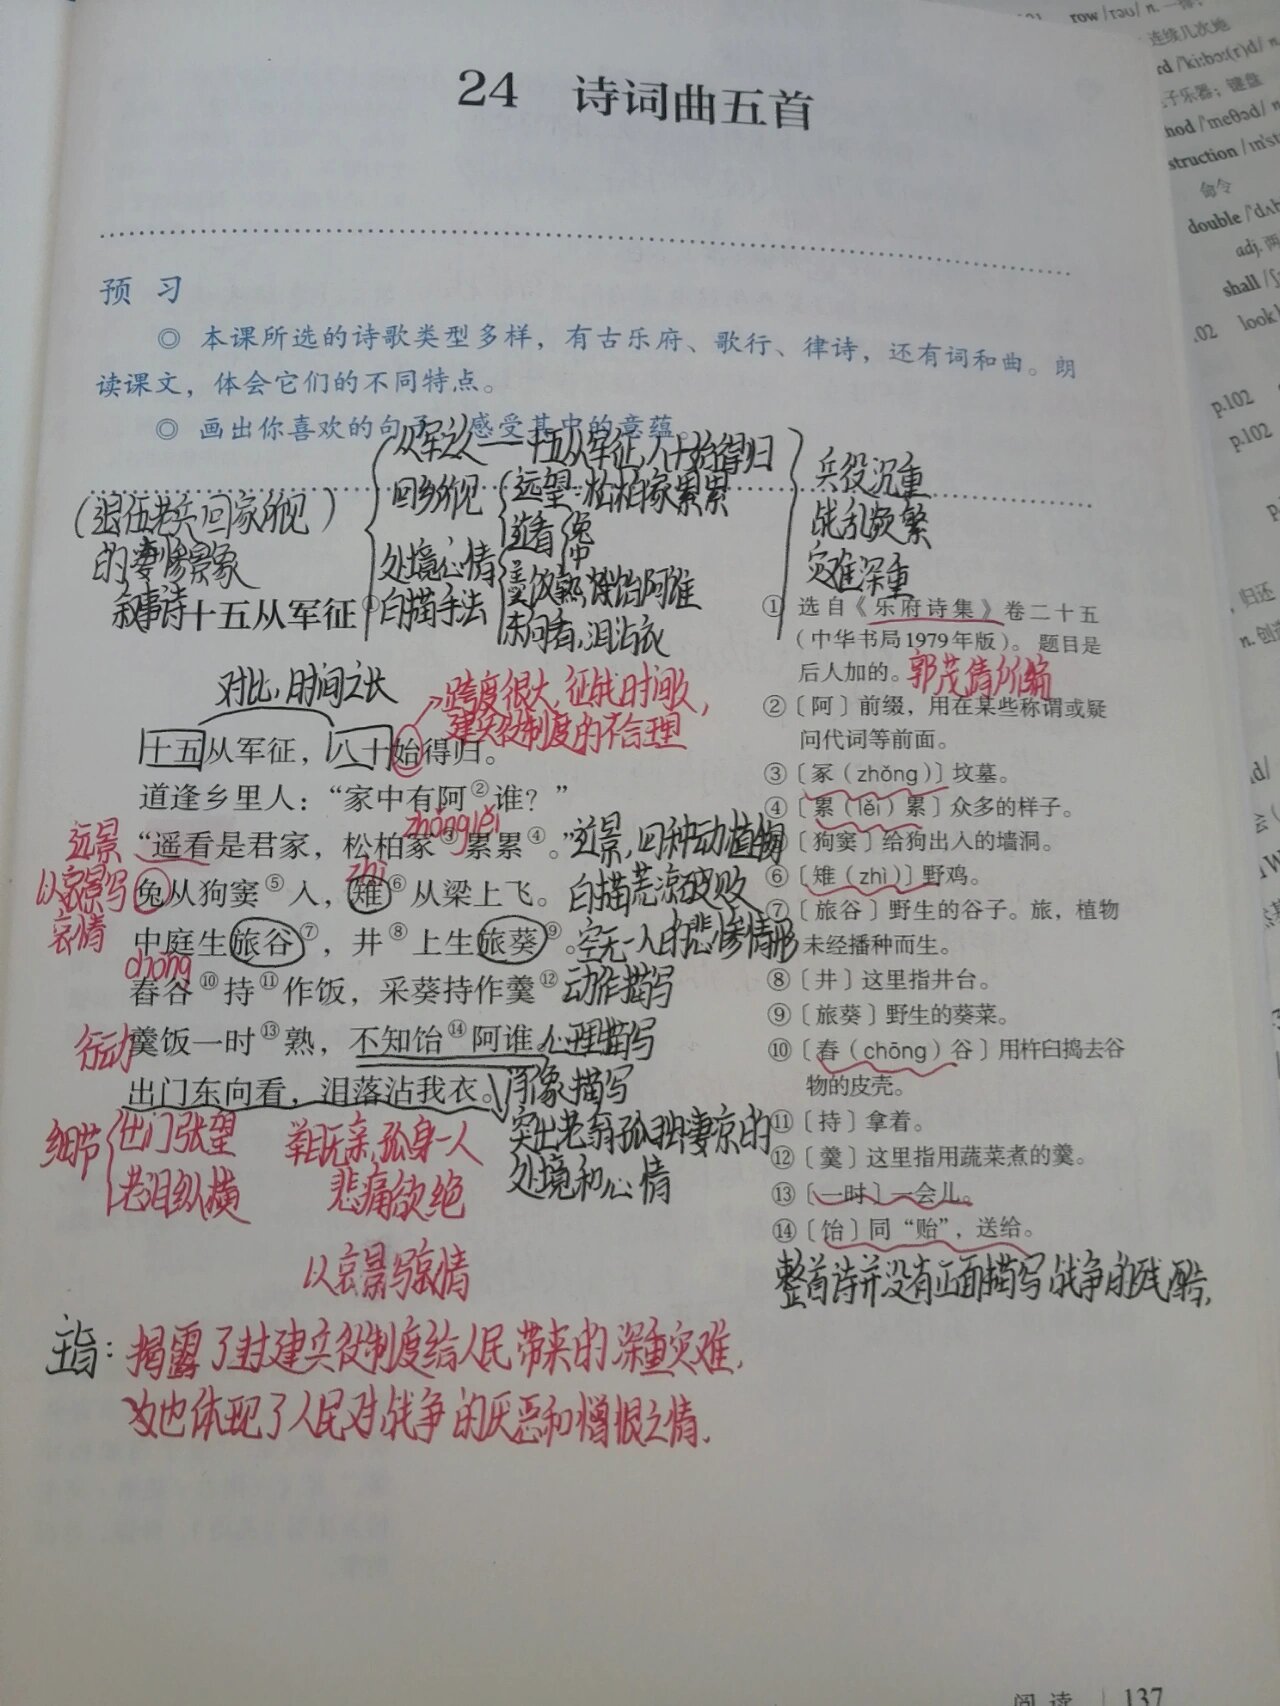 24 诗词曲五首
预 习
◎ 本课所选的诗歌类型多样，有古乐府、歌行、律诗，还有词和曲。朗
读课文，体会它们的不同特点。
◎ 画出你喜欢的句子，感受其中的意蕴
从军之久——十五从军征,八十始得归
回乡所见
远望:松柏冢累累
近看
兔
中
处境心情
羹饭熟,不知饴阿谁
东向看,泪沾衣
白描手法
兵役沉重
战乱频繁
灾难深重
(退伍老兵回家所见)
的凄惨景象
叙事诗
十五从军征①
对比,时间之长
跨度很大,征战时间久,
建兵役制度的不合理
十五从军征，八十始得归。
道逢乡里人：“家中有阿②谁？”
zhǒng lěi
“遥看是君家，松柏冢③累累④。”
远景
以哀景写
哀情
zhì
兔从狗窦⑤入，雉⑥从梁上飞。
中庭生旅谷⑦，井⑧上生旅葵⑨。
近景,四种动植物
白描荒凉破败
空无一人的悲惨情形
chōng
舂谷⑩持⑪作饭，采葵持作羹⑫。
动作描写
行动
羹饭一时⑬熟，不知饴⑭阿谁。
心理描写
出门东向看，泪落沾我衣。
肖象描写
突出老翁孤独凄凉的
处境和心情
细节
出门张望
老泪纵横
举目无亲,孤身一人
悲痛欲绝
以哀景写哀情
主旨:揭露了封建兵役制度给人民带来的深重灾难,
也体现了人民对战争的厌恶和憎恨之情.
① 选自《乐府诗集》卷二十五
（中华书局1979年版）。题目是
后人加的。郭茂倩所编
②〔阿〕前缀，用在某些称谓或疑
问代词等前面。
③〔冢（zhǒng）〕坟墓。
④〔累（lěi）累〕众多的样子。
〔狗窦〕给狗出入的墙洞。
⑥〔雉（zhì）〕野鸡。
⑦〔旅谷〕野生的谷子。旅，植物
未经播种而生。
⑧〔井〕这里指井台。
⑨〔旅葵〕野生的葵菜。
⑩〔舂（chōng）谷〕用杵臼捣去谷
物的皮壳。
⑪〔持〕拿着。
⑫〔羹〕这里指用蔬菜煮的羹。
⑬〔一时〕一会儿。
⑭〔饴〕同“贻”，送给。
整首诗并没有正面描写战争的残酷,
阅读 137
row /rəʊ/ n.
连续几次地
rd /ˈkiːbɔː(r)d/ n.
子乐器；键盘
hod /ˈmeθəd/ n
struction /ɪnˈst
命令
double /ˈdʌb
adj. 两
shall /ʃ
.02 look
p.102
p.102
，归还
n. 创造